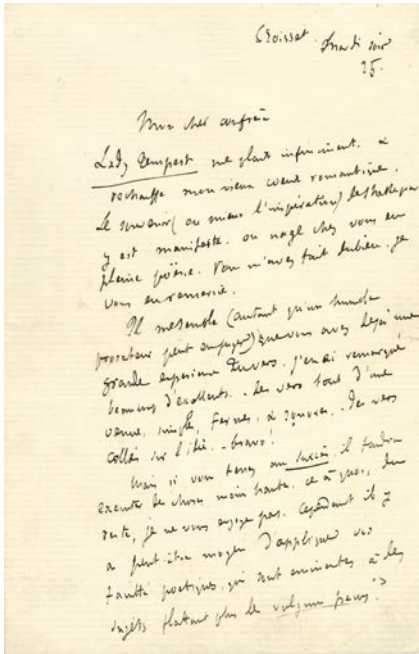 Croisset. Mardi soir
25.
Mon cher confrère
Lady Tempest me plaît infiniment. &
réchauffe mon vieux cœur romantique.
Le souvenir (ou mieux l'inspiration) de Shakespeare
y est manifeste. on nage chez vous en
pleine poësie. Vous m'avez fait du bien. je
vous en remercie.
Il me semble (autant qu'un humble
prosateur peut en juger) que vous avez déjà une
grande expérience du vers. j'en ai remarqué
beaucoup d'excellents. - des vers tout d'une
venue, simples, fermes, & sonores. - des vers
collés sur l'idée. - bravo!
Mais si vous tenez au succès, il faudra
exécuter des choses moins hautes. ce à quoi, du
reste, je ne vous engage pas. Cependant il y
a peut-être moyen d'appliquer vos
facultés poëtiques, qui sont éminentes à des
sujets flattant plus le vulgum pecus?